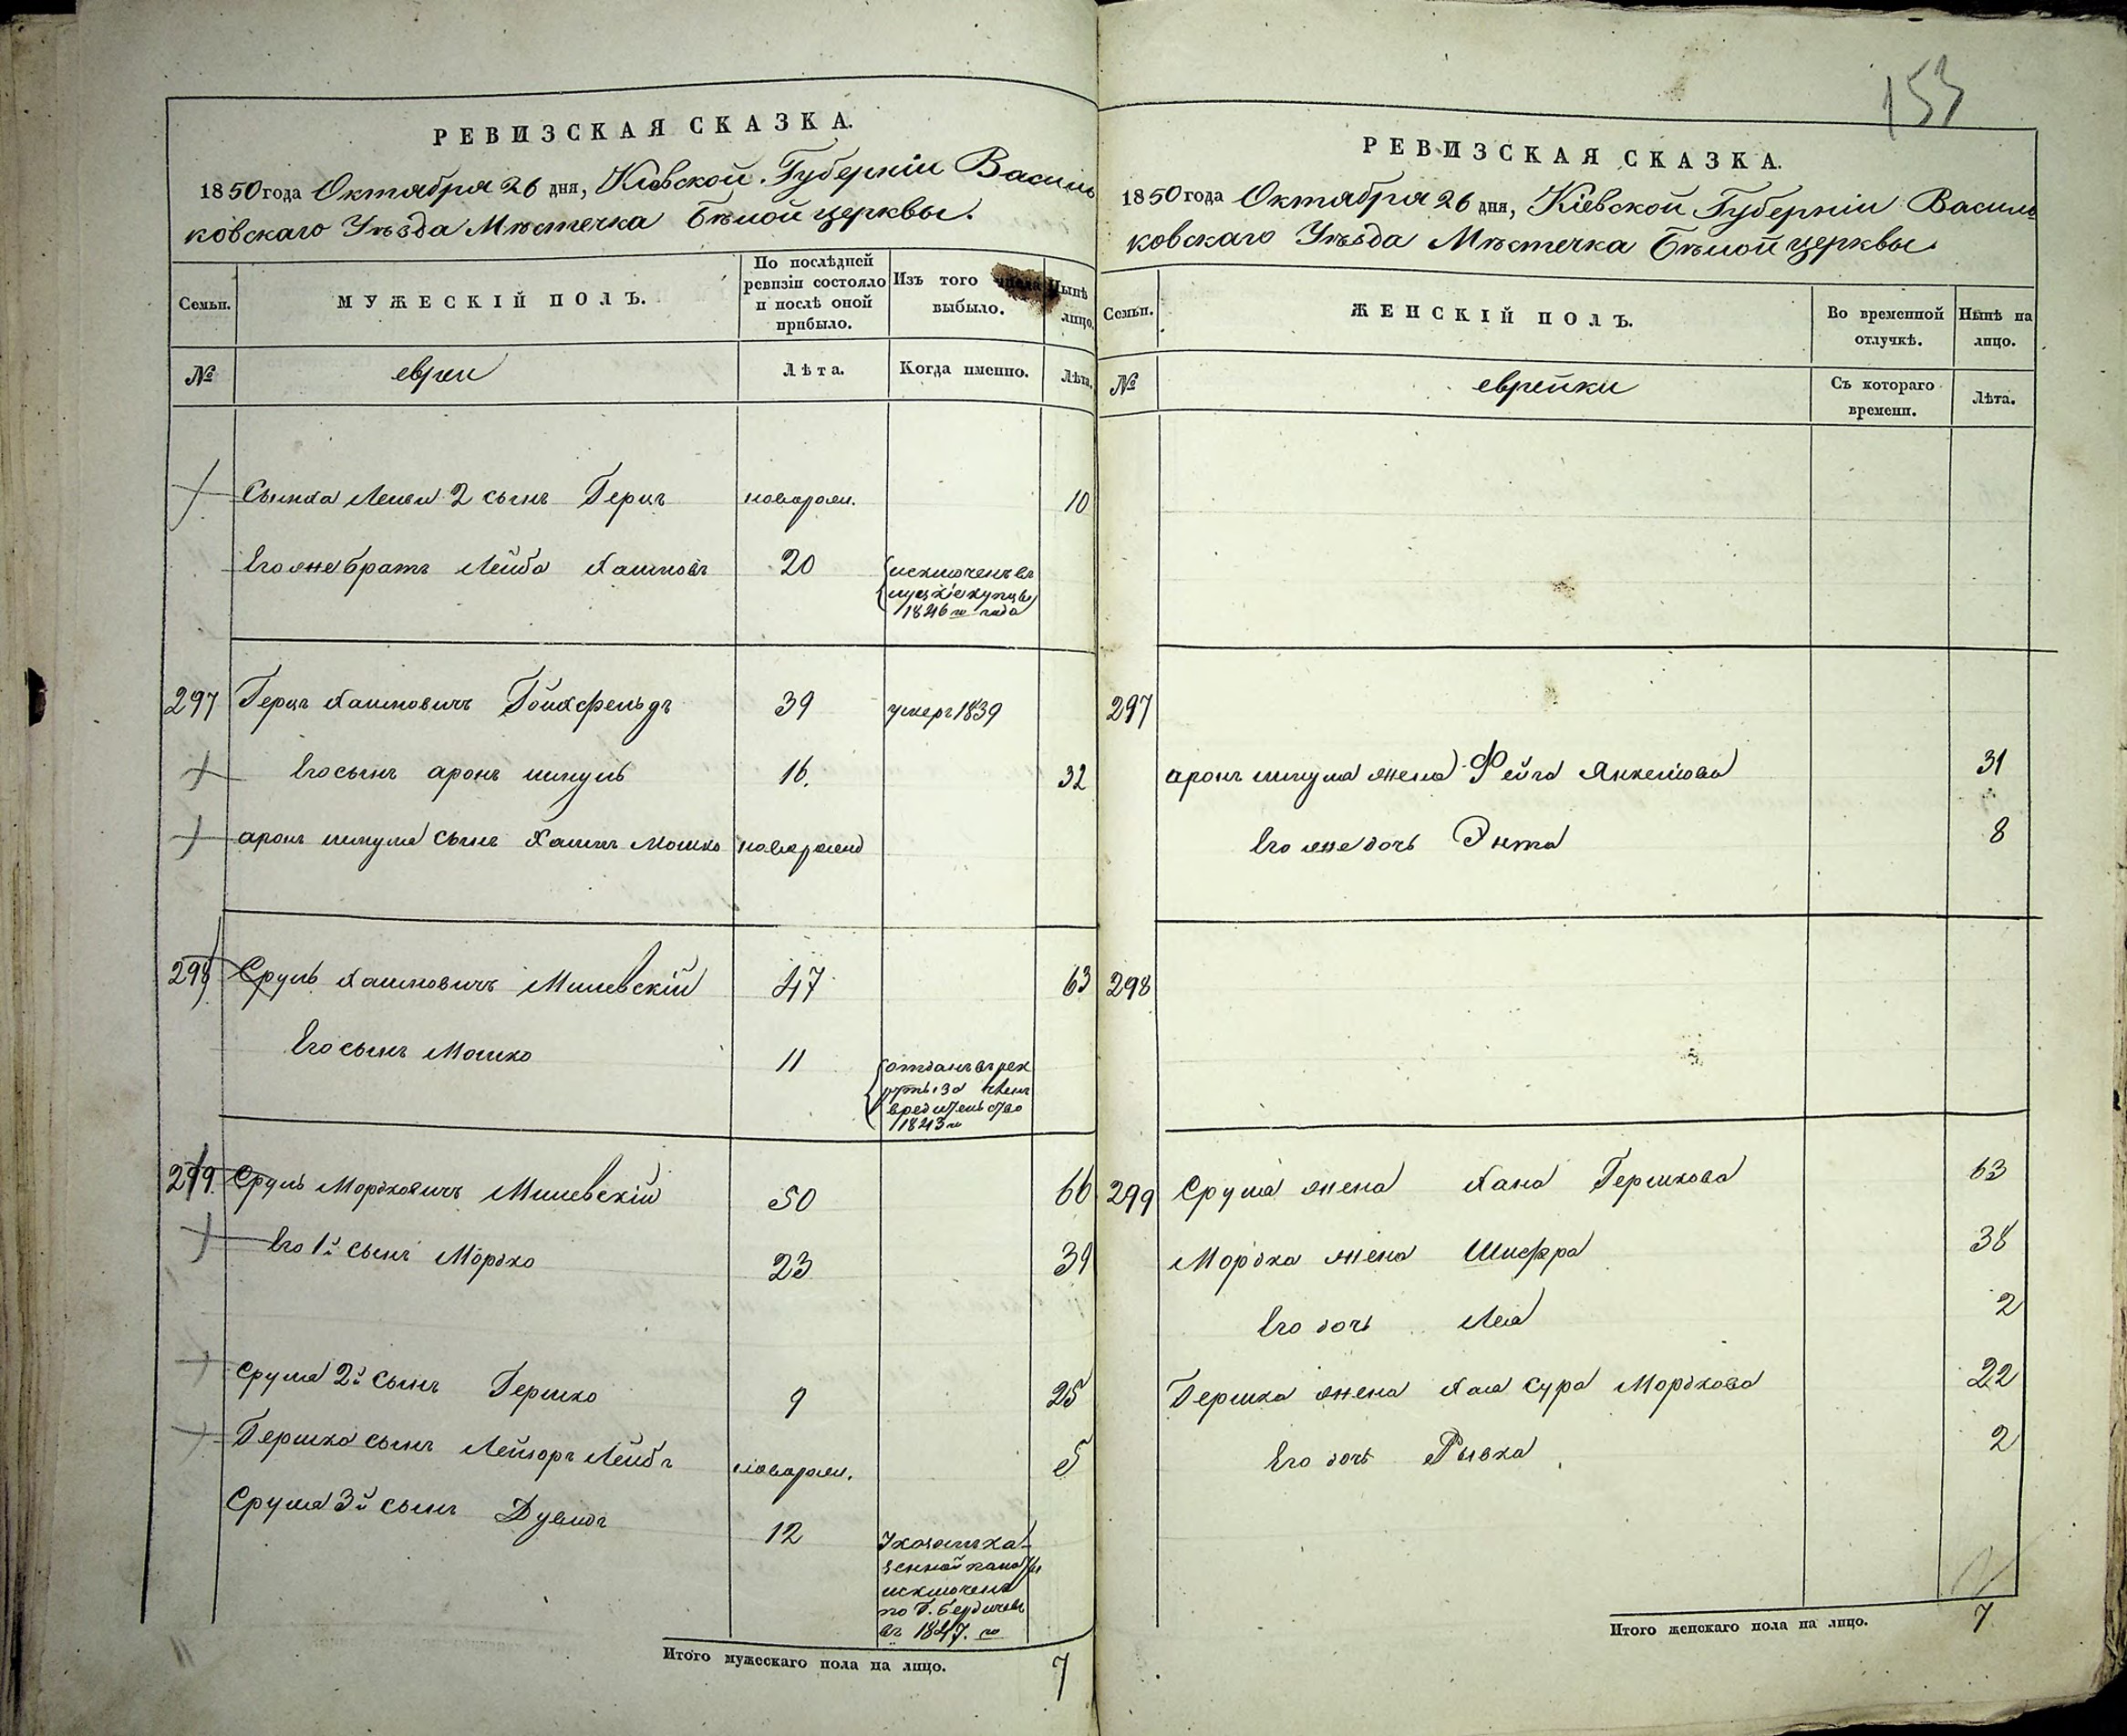 153
РЕВИЗСКАЯ СКАЗКА.
1850 года Октября 26 дня, Кіевской Губерніи Василь
ковскаго Уѣзда Мѣстечка Бѣлой церквы.
Семьи.
МУЖЕСКІЙ ПОЛЪ.
По послѣдней
ревизіи состояло
и послѣ оной
прибыло.
Изъ того числа
выбыло.
Нынѣ
лицо.
№
евреи
Лѣта.
Когда именно.
Лѣта.
сынъ Герцъ новорож. 10
Его же братъ Лейба Хаимовъ 20
исключенъ въ
луцкіе купцы
1846 го года
297 Герцъ Хаимовичъ Гойхфельдъ 39 умеръ 1839
Его сынъ аронъ шмуль 16. 32
аронъ шмуля сынъ Хаимъ Мошко новорожд
298 Сруль Хаимовичъ Милевскій 47 63
Его сынъ Мошко 11
отданъ въ рек
руты за член
вредительство
1843 го
299. Сруль Мордковичъ Милевскій 50 66
Его 1й сынъ Мордко 23 39
Сруля 2й сынъ Гершко 9 25
Гершка сынъ Лейзоръ Лейбъ новорож. 5
Сруля 3й сынъ Дувидъ 12
Указомъ ка-
зенной палаты
исключенъ
по Г. Бердичевъ
въ 1847. го
Итого мужескаго пола на лицо. 7
РЕВИЗСКАЯ СКАЗКА.
1850 года Октября 26 дня, Кіевской Губерніи Василь
ковскаго Уѣзда Мѣстечка Бѣлой церквы.
Семьи.
ЖЕНСКІЙ ПОЛЪ.
Во временной
отлучкѣ.
Нынѣ на
лицо.
№
еврейки
Съ котораго
времени.
Лѣта.
297
аронъ шмуля жена Фейга Янкелиова 31
Его же дочь Энта 8
298
299 Сруля жена Хана Гершкова 63
Мордка жена Шифра 38
Его дочь Лея 2
Гершка жена Хая Сура Мордкова 22
Его дочь Рывка 2
Итого женскаго пола на лицо. 7